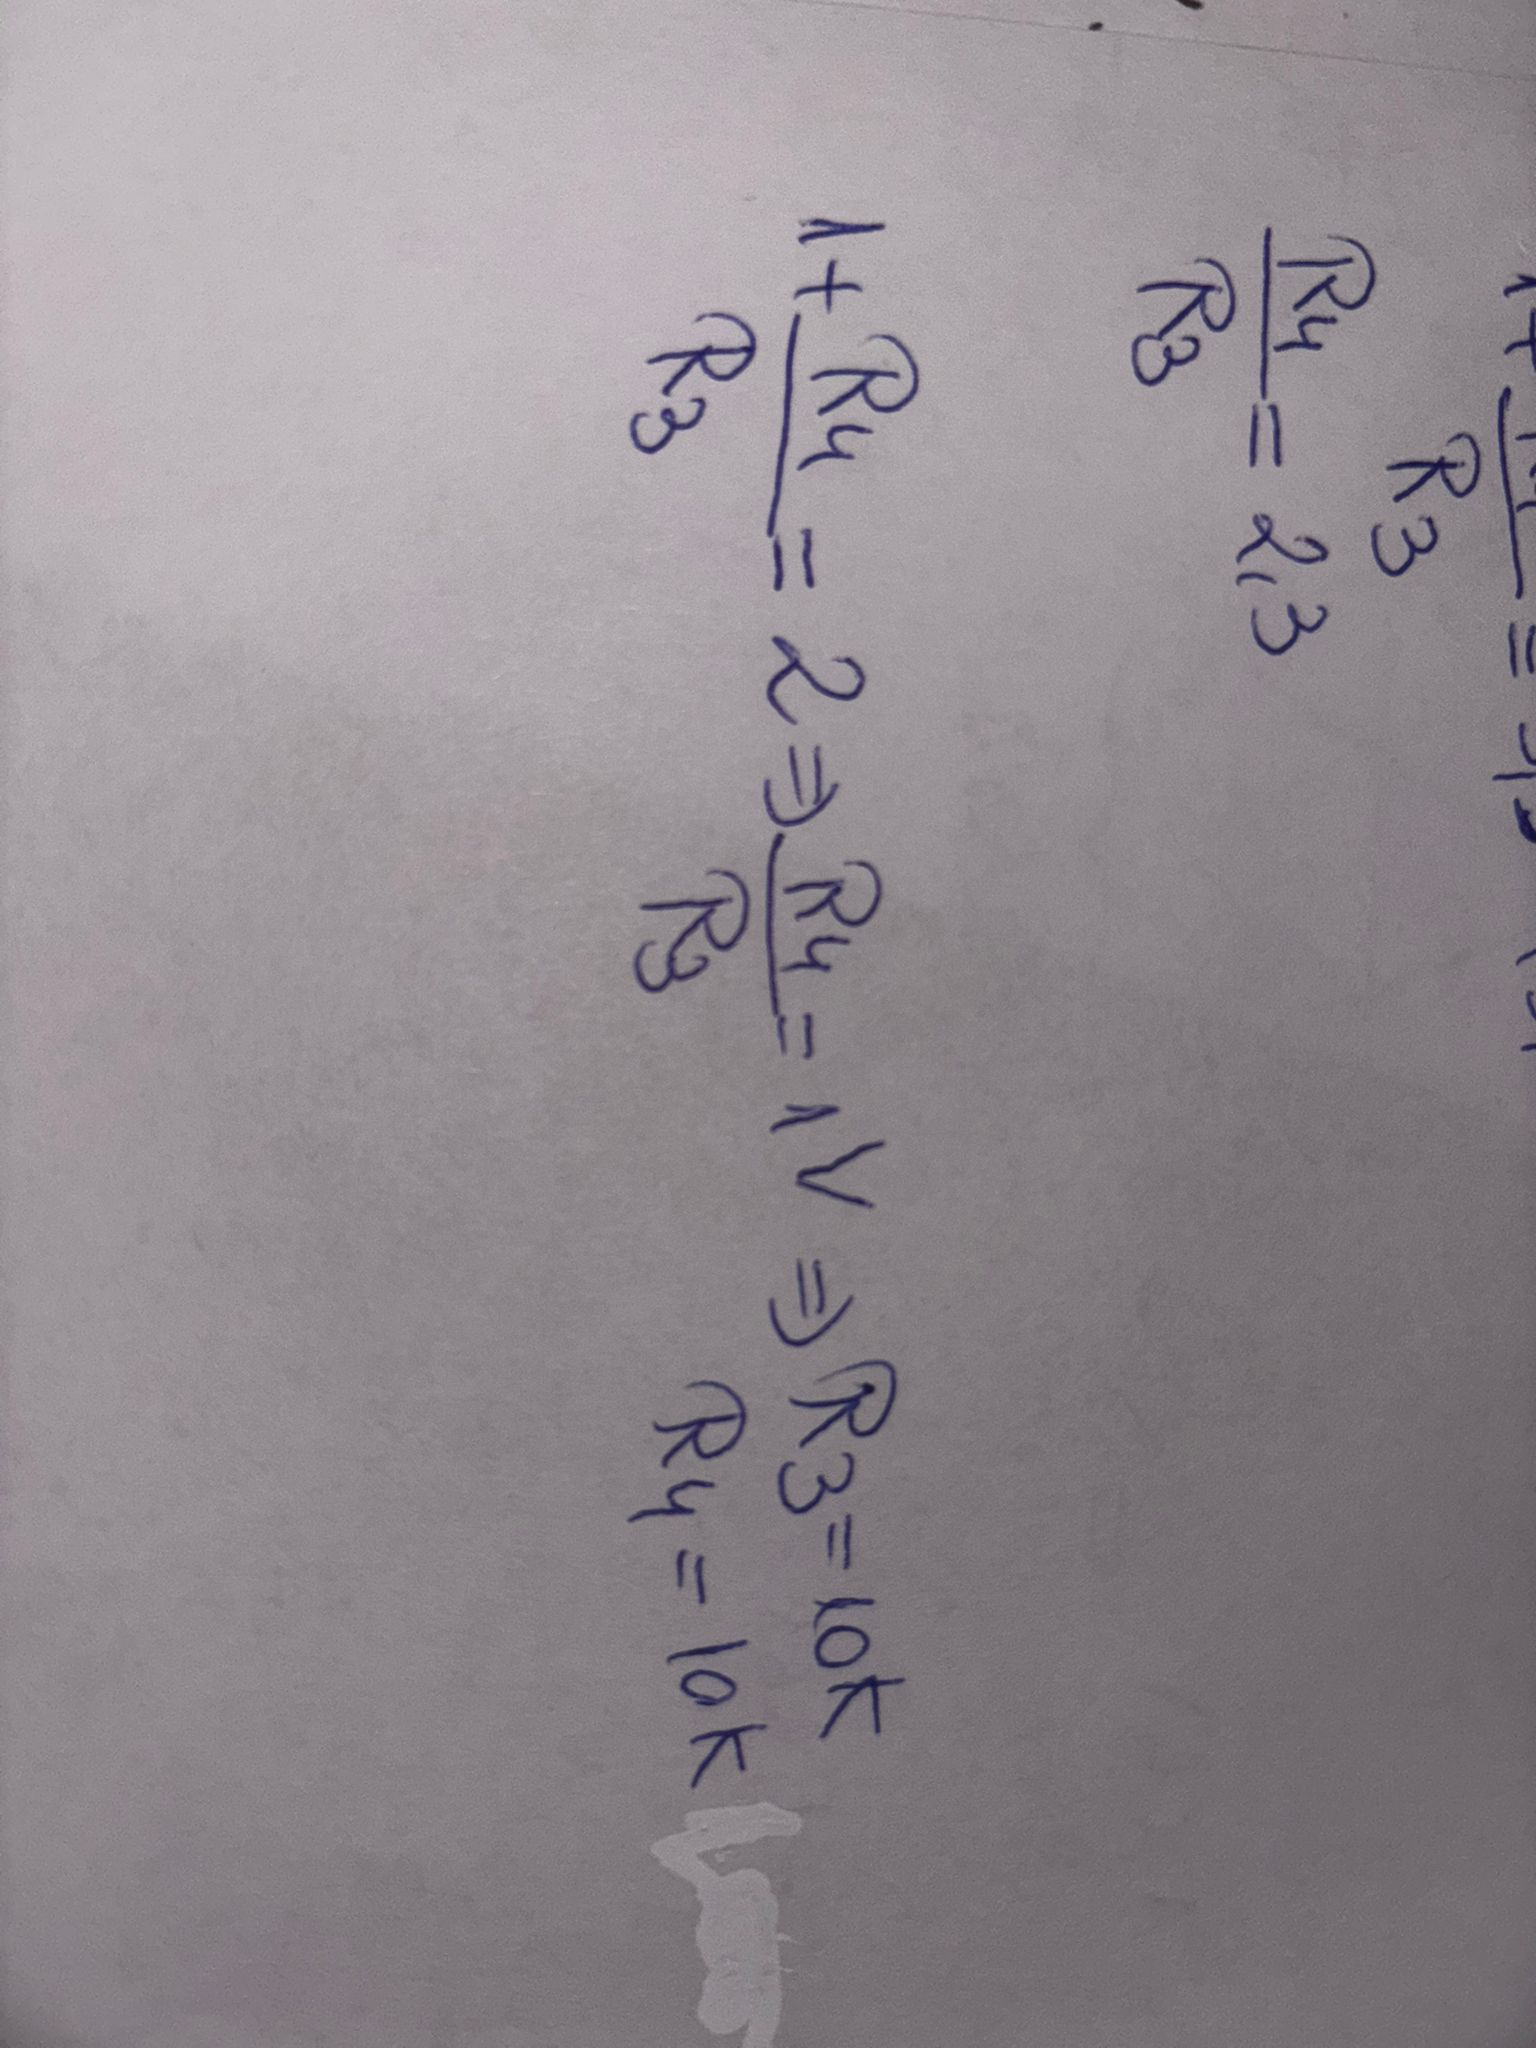 R3
R4/R3 = 2,3
1 + R4/R3 = 2 => R4/R3 = 1V => R3 = 10k
R4 = 10k